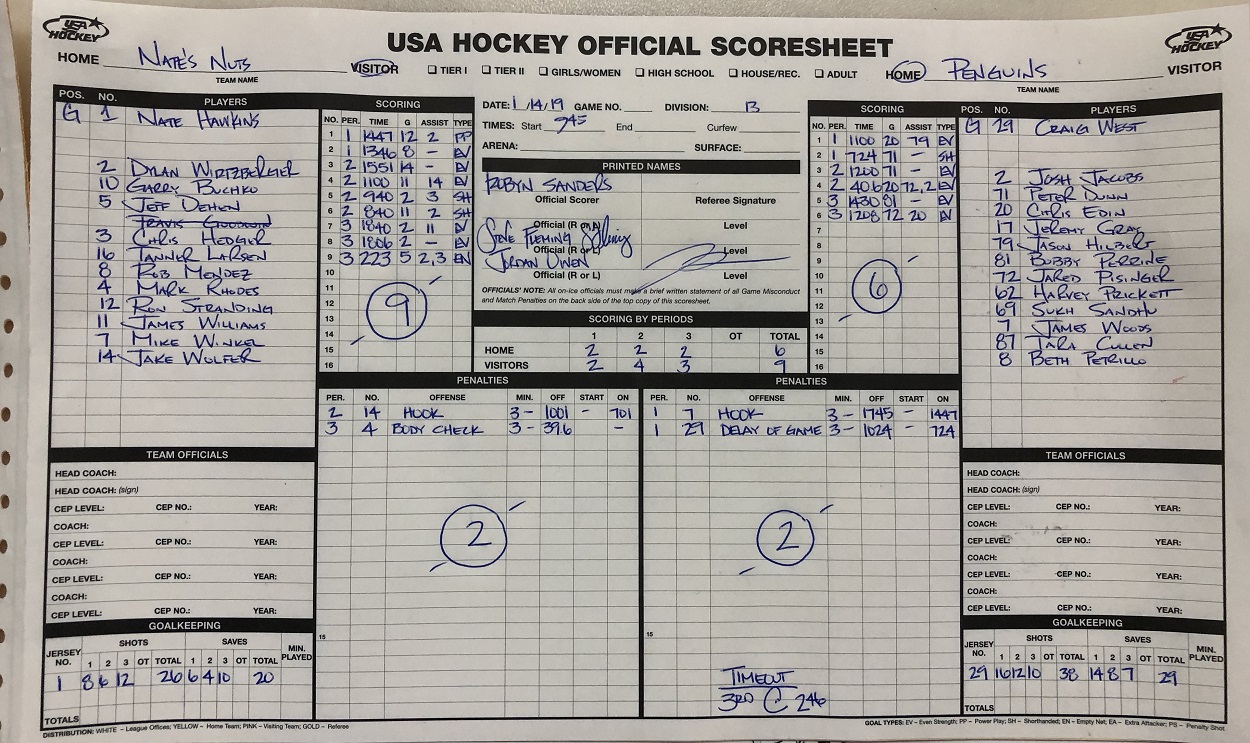 USA HOCKEY
USA HOCKEY OFFICIAL SCORESHEET
USA HOCKEY
HOME NATE'S NUTS VISITOR
TEAM NAME
TIER I TIER II GIRLS/WOMEN HIGH SCHOOL HOUSE/REC. ADULT
HOME PENGUINS VISITOR
TEAM NAME
POS. NO. PLAYERS
G 1 NATE HAWKINS
2 DYLAN WIRTZBERGER
10 GARRY BUCHKO
5 JEFF DEHEN
TRAVIS GOODWIN
3 CHRIS HEDGER
16 TANNER LARSEN
8 ROB MENDEZ
4 MARK RHODES
12 RON STRANDING
11 JAMES WILLIAMS
7 MIKE WINKEL
14 JAKE WOLFER
SCORING
NO. PER. TIME G ASSIST TYPE
1 1 1447 12 2 PP
2 1 1346 8 - EV
3 2 1551 14 - EV
4 2 1100 11 14 EV
5 2 940 2 3 SH
6 2 840 11 2 SH
7 3 1840 2 11 EV
8 3 1806 2 - EV
9 3 223 5 2,3 EN
10
11
12
13
14
15
16
9
DATE: 1/14/19 GAME NO. DIVISION: B
TIMES: Start 945 End Curfew
ARENA: SURFACE:
PRINTED NAMES
ROBYN SANDERS
Official Scorer Referee Signature
Official (R or L) Level
STEVE FLEMING
Official (R or L) Level
JORDAN OWEN
Official (R or L) Level
OFFICIALS' NOTE: All on-ice officials must make a brief written statement of all Game Misconduct
and Match Penalties on the back side of the top copy of this scoresheet.
SCORING BY PERIODS
1 2 3 OT TOTAL
HOME 2 2 2 6
VISITORS 2 4 3 9
SCORING
NO. PER. TIME G ASSIST TYPE
1 1 1100 20 79 EV
2 1 724 71 - SH
3 2 1200 71 - EV
4 2 406 20 72,2 EV
5 3 1430 81 - EV
6 3 1208 72 20 EV
7
8
9
10
11
12
13
14
15
16
6
POS. NO. PLAYERS
G 29 CRAIG WEST
2 JOSH JACOBS
71 PETER DUNN
20 CHRIS EDIN
17 JEREMY GRAY
79 JASON HILBERT
81 BOBBY PERRINE
72 JARED PISINGER
62 HARVEY PRICKETT
69 SUKH SANDHU
7 JAMES WOODS
87 TARA CULLEN
8 BETH PETRILLO
PENALTIES
PER. NO. OFFENSE MIN. OFF START ON
2 14 HOOK 3- 1001 - 701
3 4 BODY CHECK 3- 39.6 -
2
15
PENALTIES
PER. NO. OFFENSE MIN. OFF START ON
1 7 HOOK 3- 1745 - 1447
1 29 DELAY OF GAME 3- 1024 - 724
2
15
TIMEOUT
3RD @ 246
TEAM OFFICIALS
HEAD COACH:
HEAD COACH: (sign)
CEP LEVEL: CEP NO.: YEAR:
COACH:
CEP LEVEL: CEP NO.: YEAR:
COACH:
CEP LEVEL: CEP NO.: YEAR:
COACH:
CEP LEVEL: CEP NO.: YEAR:
GOALKEEPING
SHOTS SAVES
JERSEY NO. 1 2 3 OT TOTAL 1 2 3 OT TOTAL MIN. PLAYED
1 8 6 12 26 6 4 10 20
TOTALS
TEAM OFFICIALS
HEAD COACH:
HEAD COACH: (sign)
CEP LEVEL: CEP NO.: YEAR:
COACH:
CEP LEVEL: CEP NO.: YEAR:
COACH:
CEP LEVEL: CEP NO.: YEAR:
COACH:
CEP LEVEL: CEP NO.: YEAR:
GOALKEEPING
SHOTS SAVES
JERSEY NO. 1 2 3 OT TOTAL 1 2 3 OT TOTAL MIN. PLAYED
29 16 12 10 38 14 8 7 29
TOTALS
DISTRIBUTION: WHITE – League Offices; YELLOW – Home Team; PINK – Visiting Team; GOLD – Referee
GOAL TYPES: EV – Even Strength; PP – Power Play; SH – Shorthanded; EN – Empty Net; EA – Extra Attacker; PS – Penalty Shot